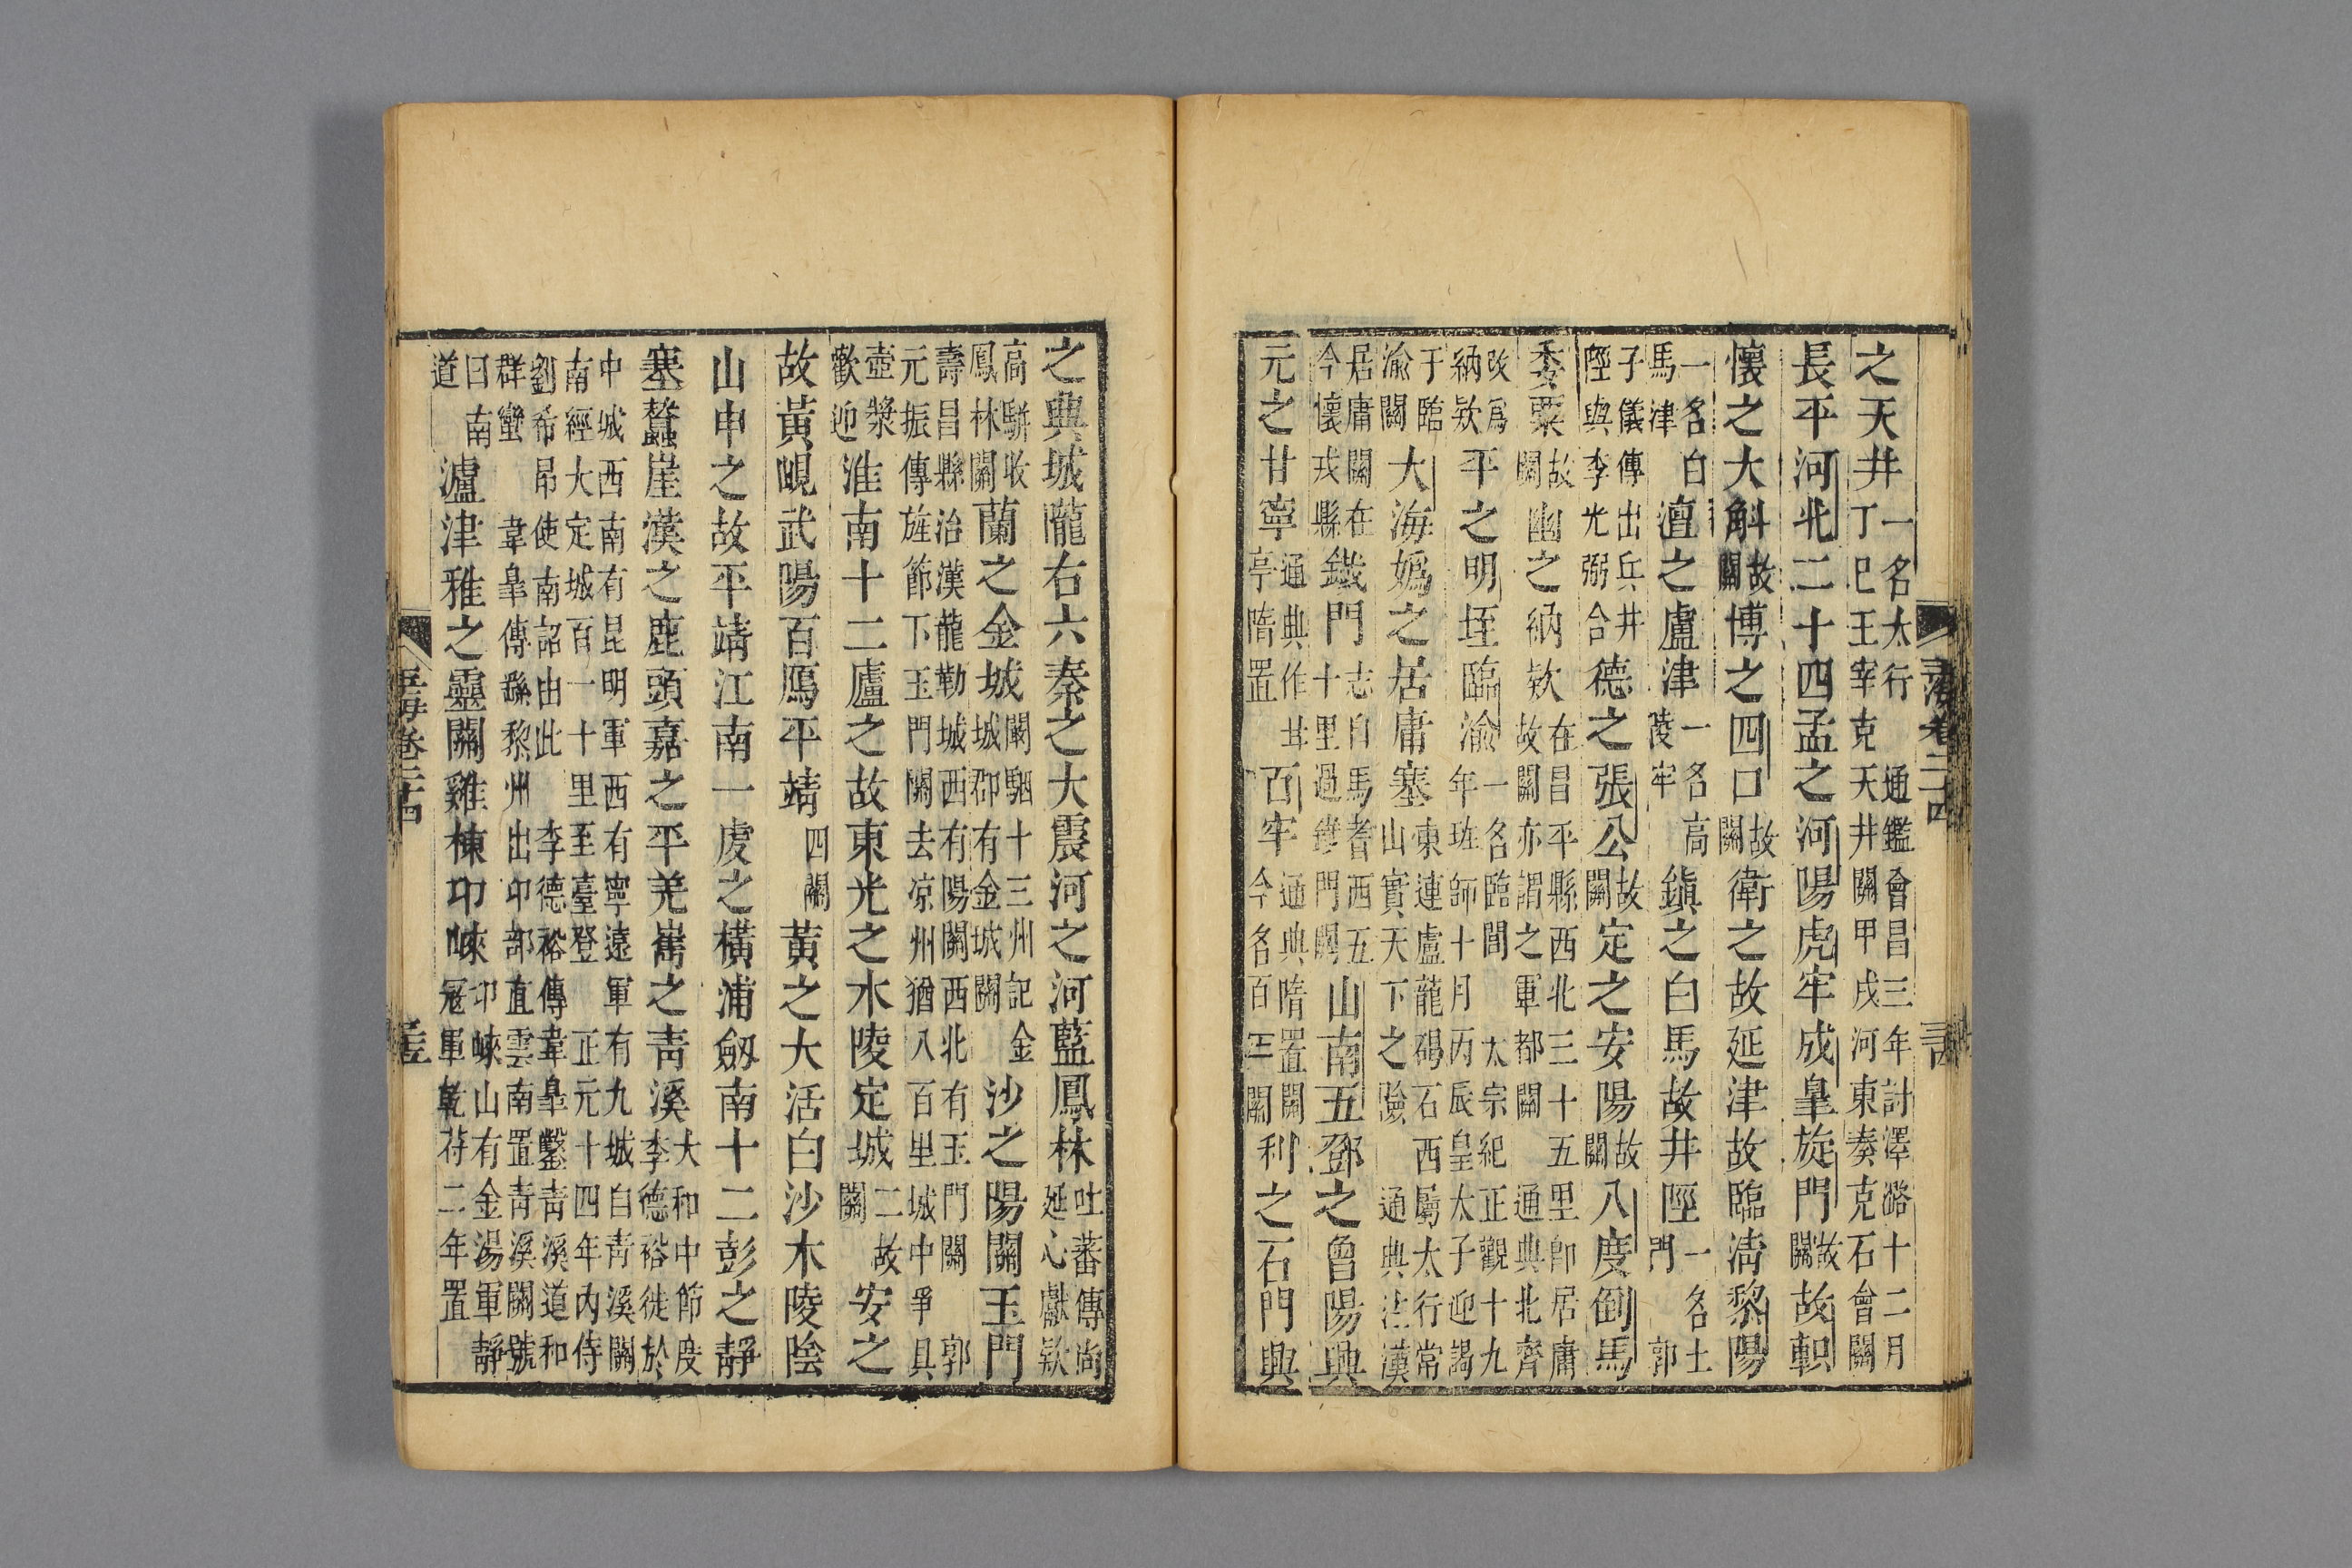 玉海卷二十四
之天井一名太行通鑑會昌三年討澤潞十二月丁巳王宰克天井關甲戌河東奏克石會關
長平河北二十四孟之河陽虎牢成皐旋門故關故軹
懷之大斛故關博之四口故關衛之故延津故臨淸黎陽
一名白馬津澶之盧津一名高陵牢鎮之白馬故井陘一名土門郭
子儀傳出兵井陘與李光弼合德之張公故關定之安陽故關八度倒馬
委粟故關幽之納欵在昌平縣西北三十五里即居庸故關亦謂之軍都關通典北齊
改爲納欵平之明垤臨渝一名臨閭太宗紀正觀十九年班師十月丙辰皇太子迎謁
于臨渝關大海嬀之居庸塞東連盧龍碣石西屬太行常山實天下之險通典注漢
居庸關在今懷戎縣鐵門志自馬耆西五十里過鐵門關山南五鄧之魯陽興
元之甘寧通典作甘亭隋置百牢通典隋置關今名百牢關利之石門興
之典城隴右六秦之大震河之河藍鳳林吐蕃傳尚延心獻欵
高騈收鳳林關蘭之金城闞駰十三州記金城郡有金城關沙之陽關玉門
壽昌縣治漢龍勒城西有陽關西北有玉門關郭元振傳旌節下玉門關去凉州猶八百里城中爭具
壺漿歡迎淮南十二廬之故東光之木陵定城二故關安之
故黃峴武陽百鴈平靖四關黃之大活白沙木陵陰
山申之故平靖江南一虔之橫浦劔南十二彭之靜
塞蠶崖漢之鹿頭嘉之平羌嶲之青溪大和中節度李德裕徙於
中城西南有昆明軍西有寧遠軍有九城自青溪關南經大定城百一十里至臺登正元十四年內侍
劉希昻使南詔由此李德裕傳韋皐鑿青溪道和群蠻韋皐傳繇黎州出卭部直雲南置青溪關號
曰南道瀘津雅之靈關雞棟卭崍卭崍山有金湯軍靜寇軍乾符二年置
玉海卷二十四